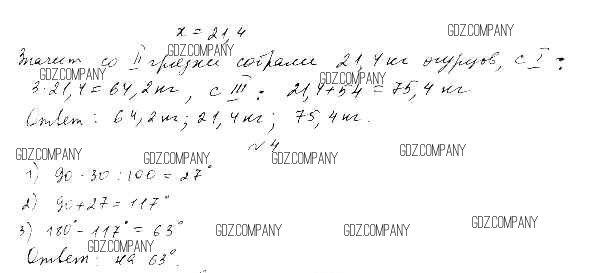 x = 21,4
Значит со II грядки собрали 21,4 кг огурцов, с I:
3·21,4 = 64,2 кг, с III: 21,4+54 = 75,4 кг
Ответ: 64,2 кг; 21,4 кг; 75,4 кг.
№4
1) 90·30:100 = 27°
2) 90+27 = 117°
3) 180° - 117° = 63°
Ответ: на 63°.
GDZ.COMPANY
GDZ.COMPANY
GDZ.COMPANY
GDZ.COMPANY
GDZ.COMPANY
GDZ.COMPANY
GDZ.COMPANY
GDZ.COMPANY
GDZ.COMPANY
GDZ.COMPANY
GDZ.COMPANY
GDZ.COMPANY